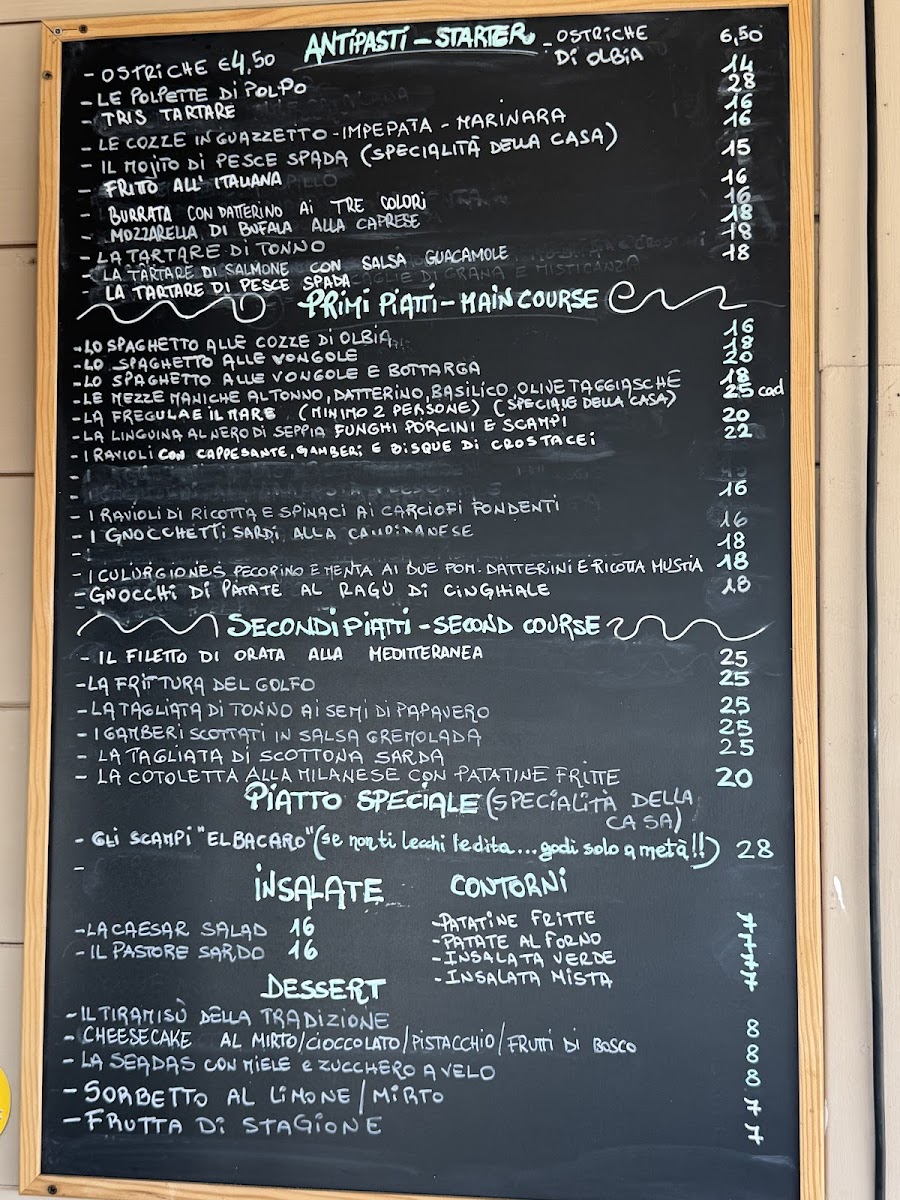 ANTIPASTI - STARTER
- OSTRICHE €4,50 - OSTRICHE DI OLBIA 6,50
- LE POLPETTE DI POLPO 14
- TRIS TARTARE 28
- LE COZZE IN GUAZZETTO - IMPEPATA - MARINARA 16
- IL MOJITO DI PESCE SPADA (SPECIALITÀ DELLA CASA) 16
- FRITTO ALL'ITALIANA 15
- BURRATA CON DATTERINO AI TRE COLORI 16
- MOZZARELLA DI BUFALA ALLA CAPRESE 16
- LA TARTARE DI TONNO 18
- LA TARTARE DI SALMONE CON SALSA GUACAMOLE 18
LA TARTARE DI PESCE SPADA 18
PRIMI PIATTI - MAIN COURSE
- LO SPAGHETTO ALLE COZZE DI OLBIA 16
- LO SPAGHETTO ALLE VONGOLE 18
- LO SPAGHETTO ALLE VONGOLE E BOTTARGA 20
- LE MEZZE MANICHE AL TONNO, DATTERINO, BASILICO OLIVE TAGGIASCHE 18
- LA FREGULA E IL MARE (MINIMO 2 PERSONE) (SPECIALE DELLA CASA) 25 cad
- LA LINGUINA AL NERO DI SEPPIA FUNGHI PORCINI E SCAMPI 20
- I RAVIOLI CON CAPPESANTE, GAMBERI E BISQUE DI CROSTACEI 22
- I RAVIOLI DI RICOTTA E SPINACI AI CARCIOFI FONDENTI 16
- I GNOCCHETTI SARDI ALLA CAMPIDANESE 16
18
- I CULURGIONES PECORINO E MENTA AI DUE POM. DATTERINI E RICOTTA MUSTIA 18
- GNOCCHI DI PATATE AL RAGÙ DI CINGHIALE 18
SECONDI PIATTI - SECOND COURSE
- IL FILETTO DI ORATA ALLA MEDITERANEA 25
- LA FRITTURA DEL GOLFO 25
- LA TAGLIATA DI TONNO AI SEMI DI PAPAVERO 25
- I GAMBERI SCOTTATI IN SALSA GREMOLADA 25
- LA TAGLIATA DI SCOTTONA SARDA 25
- LA COTOLETTA ALLA MILANESE CON PATATINE FRITTE 20
PIATTO SPECIALE (SPECIALITÀ DELLA CASA)
- GLI SCAMPI "EL BACARO" (se non ti lecchi le dita... godi solo a metà!!) 28
INSALATE
- LA CAESAR SALAD 16
- IL PASTORE SARDO 16
CONTORNI
- PATATINE FRITTE 7
- PATATE AL FORNO 7
- INSALATA VERDE 7
- INSALATA MISTA 7
DESSERT
- IL TIRAMISÙ DELLA TRADIZIONE 8
- CHEESECAKE AL MIRTO/CIOCCOLATO/PISTACCHIO/FRUTTI DI BOSCO 8
- LA SEADAS CON MIELE e ZUCCHERO A VELO 8
- SORBETTO AL LIMONE/MIRTO 7
- FRUTTA DI STAGIONE 7